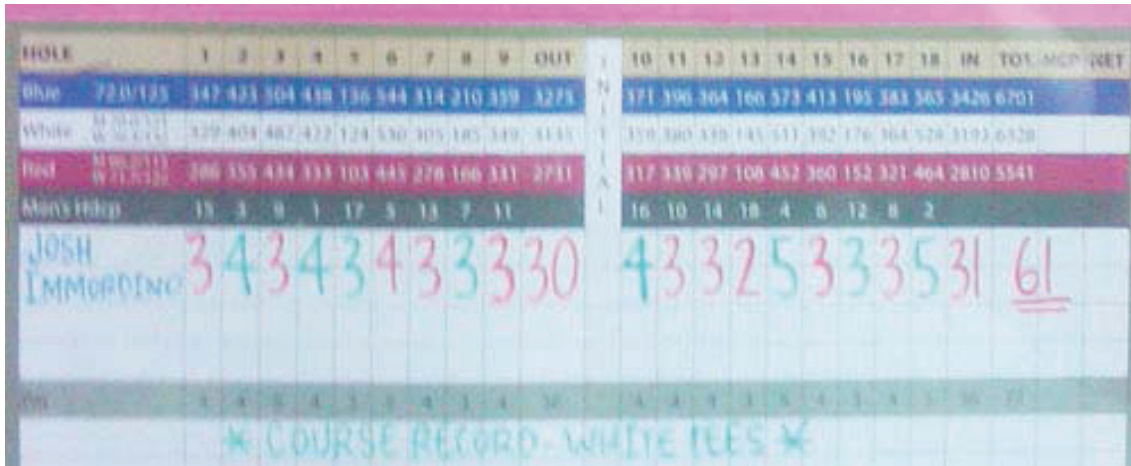 HOLE 1 2 3 4 5 6 7 8 9 OUT 10 11 12 13 14 15 16 17 18 IN TOT HCP NET
Blue 72.0/125 347 423 504 438 136 544 314 210 359 3275 371 396 364 166 573 413 195 383 565 3426 6701
White 404 124 530 305 185 349 380 176 364
Red 355 434 333 103 445 278 166 331 2731 317 339 297 108 452 360 152 321 464 2810 5541
Men's Hdcp 15 3 9 1 17 5 13 7 11 16 10 14 18 4 6 12 8 2
JOSH 3 4 3 4 3 4 3 3 3 30 4 3 3 2 5 3 3 3 5 31 61
IMMORDINO
INITIAL
4 4 5 4 3 5 4 3 4 36 4 4 4 3 5 4 3 4 5 36 72
* COURSE RECORD - WHITE TEES *